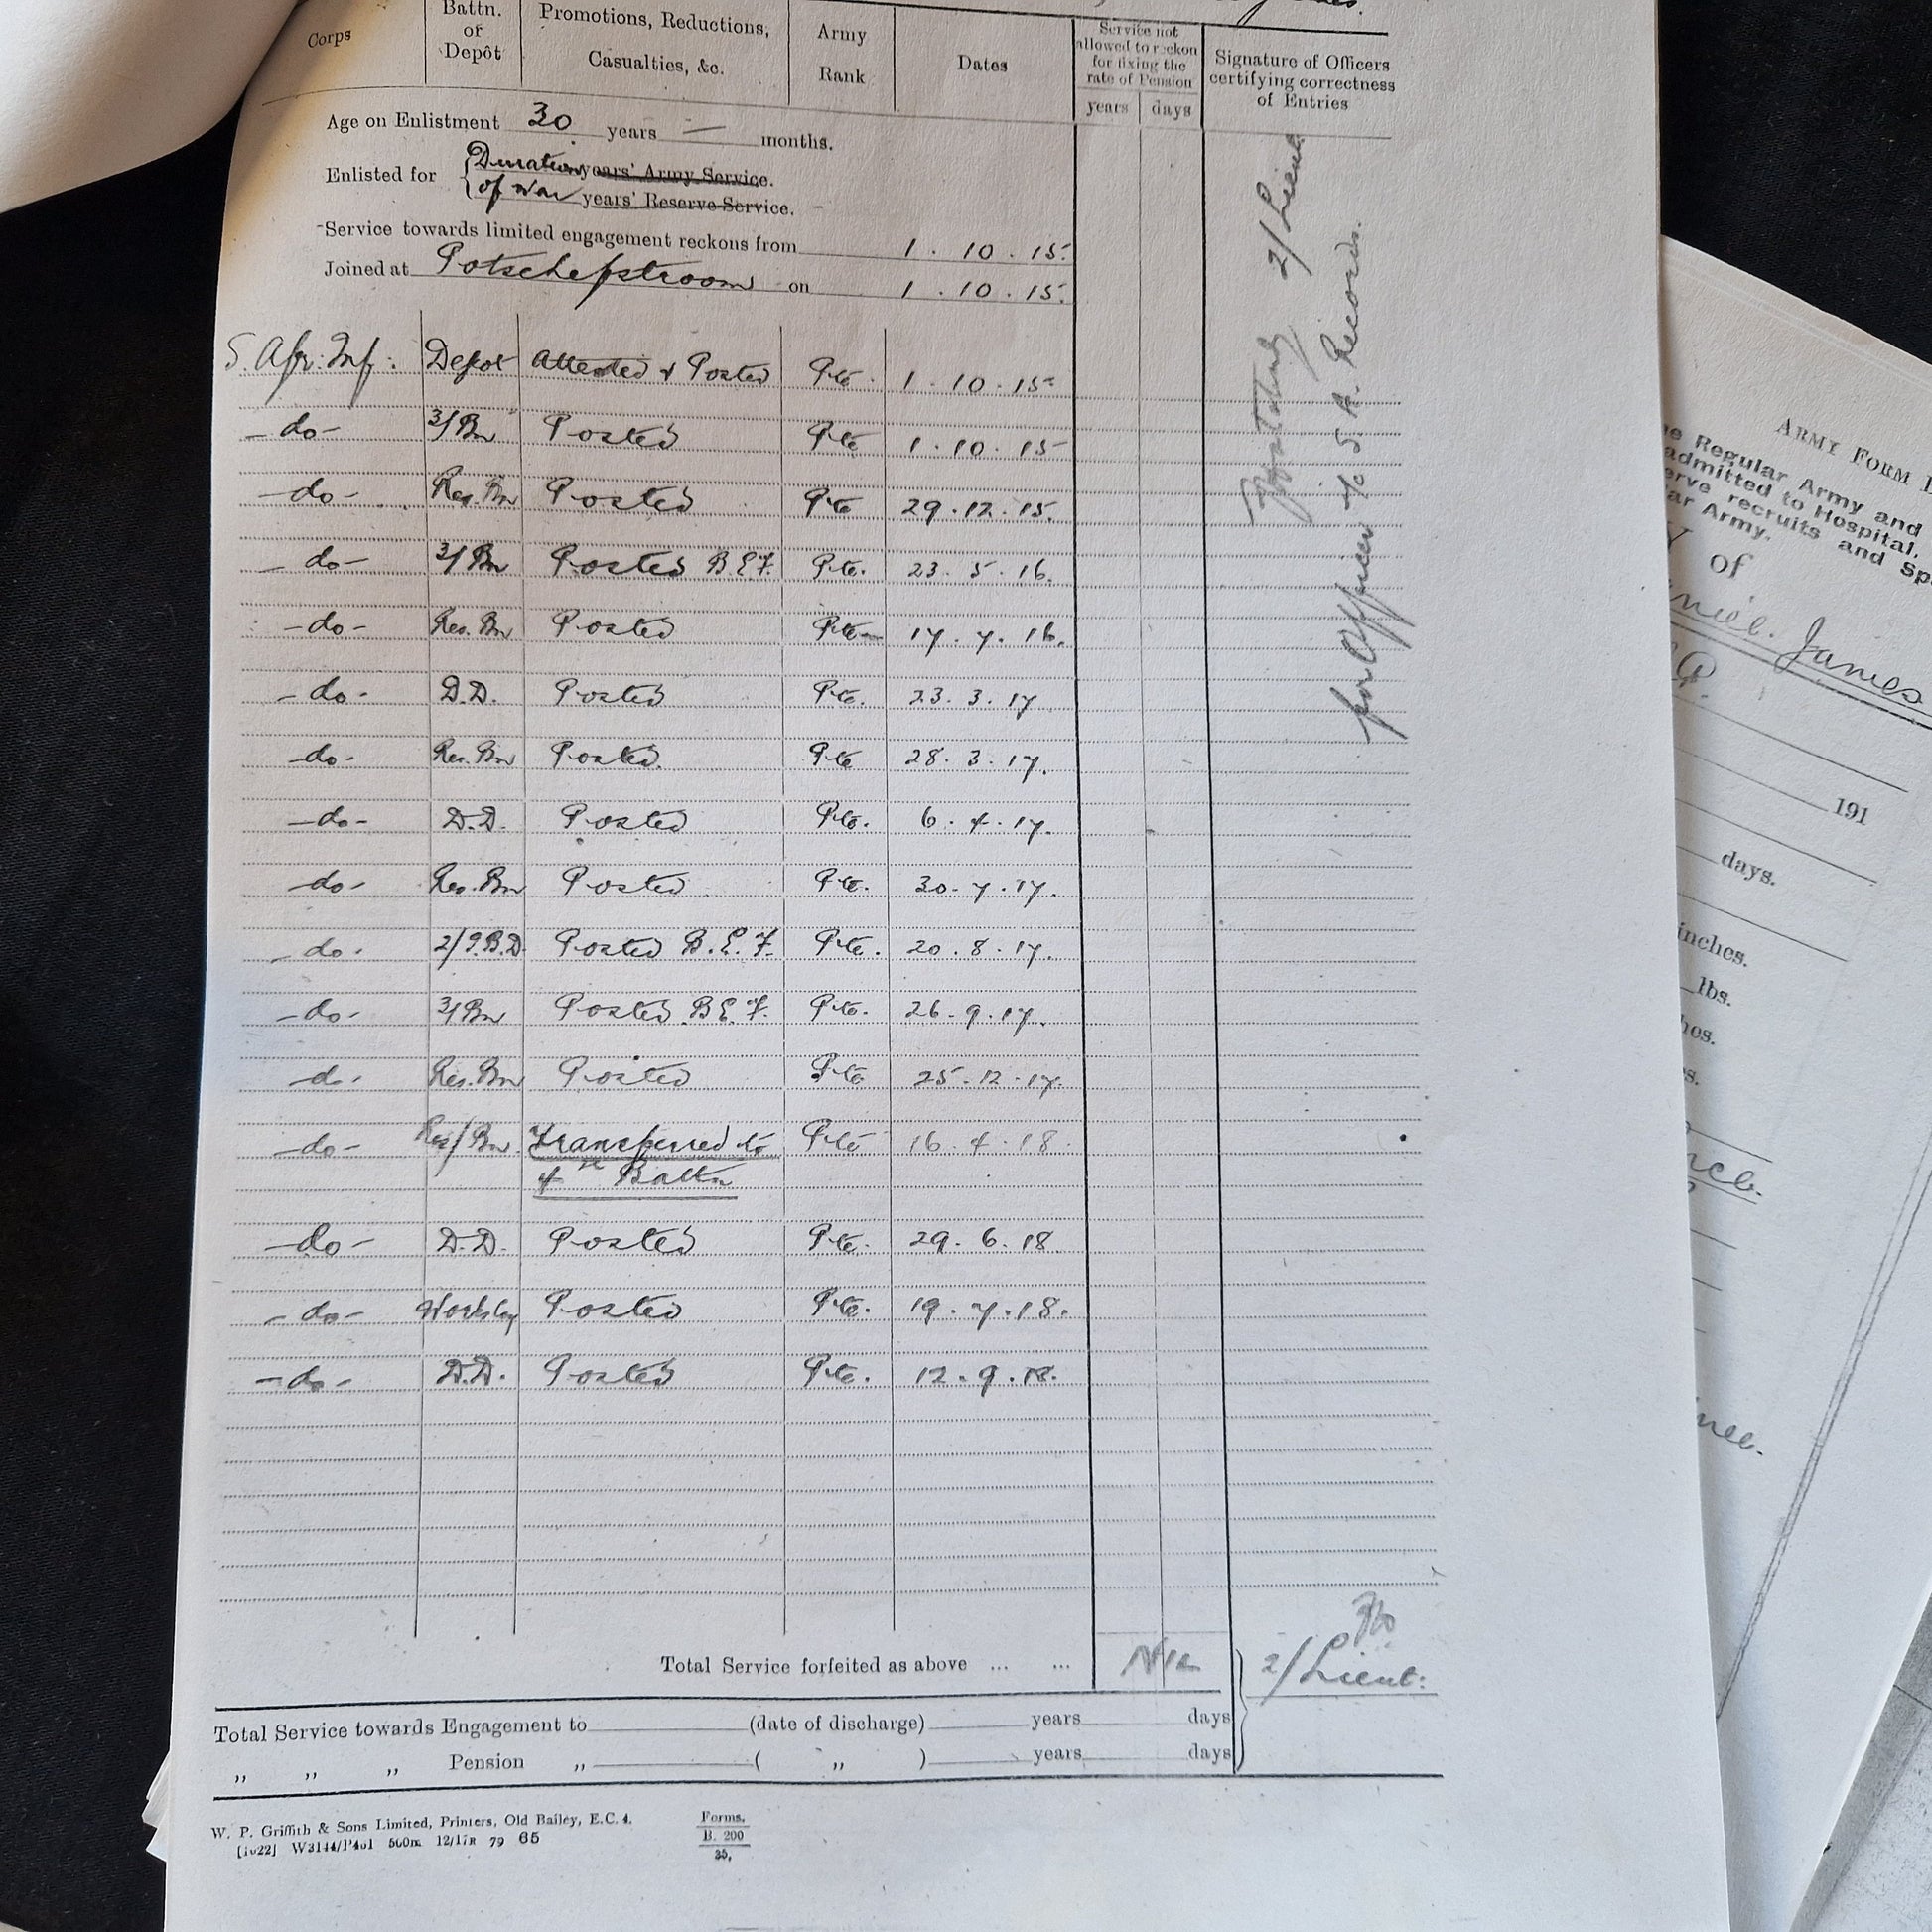 Corps
Battn. or Depôt
Promotions, Reductions, Casualties, &c.
Army Rank
Dates
Service not allowed to reckon for fixing the rate of Pension
years days
Signature of Officers certifying correctness of Entries
Age on Enlistment 30 years — months.
Enlisted for { Duration years' Army Service.
of war years' Reserve Service.
Service towards limited engagement reckons from 1 . 10 . 15.
Joined at Potschefstroom on 1 . 10 . 15.
S. Afr. Inf: Depot Attested & Posted Pte. 1 . 10 . 15
-do- 3/Bn Posted Pte 1 . 10 . 15
-do- Res. Bn Posted Pte 29 . 12 . 15.
-do- 3/Bn Posted B.E.F. Pte. 23 . 5 . 16.
-do- Res. Bn Posted Pte 17 . 7 . 16.
-do- D.D. Posted Pte. 23 . 3 . 17
-do- Res. Bn Posted. Pte 28 . 3 . 17.
-do- D.D. Posted Pte. 6 . 4 . 17.
-do- Res. Bn Posted Pte. 30 . 7 . 17.
-do- 2/I.B.D. Posted B.E.F. Pte. 20 . 8 . 17.
-do- 3/Bn Posted B.E.F. Pte. 26 . 9 . 17.
-do- Res. Bn Posted Pte 25 . 12 . 17.
-do- Res/Bn. Transferred to Pte 16 . 4 . 18.
4th Battn
-do- D.D. Posted Pte. 29 . 6 . 18.
-do- Posted Pte. 19 . 7 . 18.
-do- D.D. Posted Pte. 12 . 9 . 18.
2/Lieut
for Officer i/c S. A. Records.
Total Service forfeited as above ... ... Nil
2/Lieut:
Total Service towards Engagement to (date of discharge) years days
,, ,, ,, Pension ,, ( ,, ) years days
W. P. Griffith & Sons Limited, Printers, Old Bailey, E.C. 4.
500m 12/17 79 65
Forms.
B. 200
35.
ARMY FORM
Regular Army and
admitted to Hospital,
recruits and
Army.
of
James
191
days.
inches.
lbs.